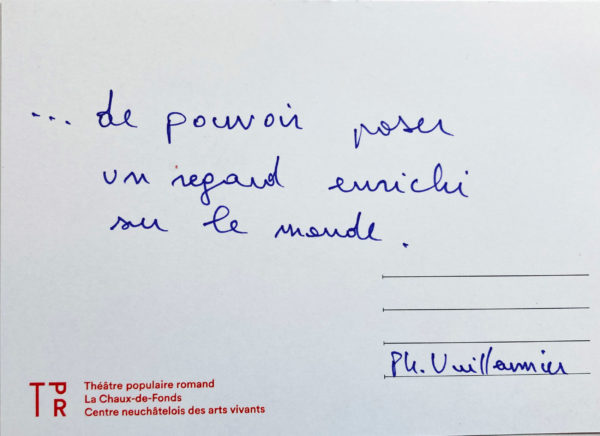 ... de pouvoir poser
un regard enrichi
sur le monde.
Ph. Vuilleumier
TPR
Théâtre populaire romand
La Chaux-de-Fonds
Centre neuchâtelois des arts vivants